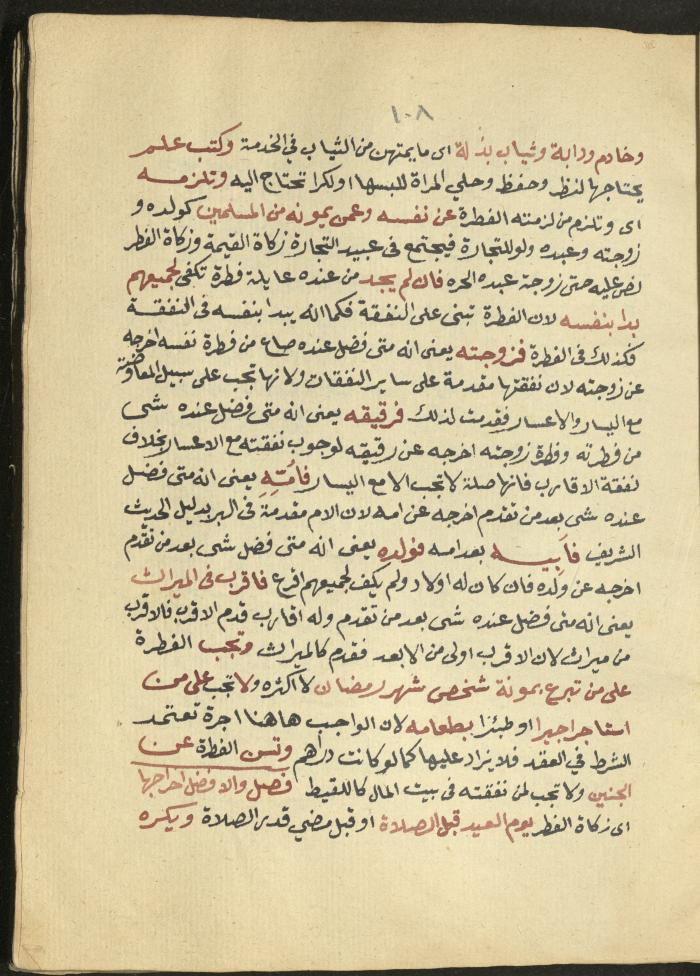 ١٠٨
وخادم ودابة وثياب بذلة اى ما يمتهن من الثياب في الخدمة وكتب علم
يحتاجها لنظر وحفظ وحلي المراة للبسها او لكرا تحتاج اليه وتلزمه
اى وتلزم من لزمته الفطرة عن نفسه وعمن يمونه من المسلمين كولده و
زوجته وعبده ولو للتجارة فيجتمع فى عبيد التجارة زكاة القيمة وزكاة الفطر
نص عليه حتى زوجة عبده الحره فان لم يجد من عنده عايلة فطرة تكفى لجميعهم
بدا بنفسه لان الفطرة تبنى على النفقة فكما انه يبدا بنفسه فى النفقة
فكذلك فى الفطرة فزوجته يعنى انه متى فضل عنده صاع من فطرة نفسه اخرجه
عن زوجته لان نفقتها مقدمة على ساير النفقات ولانها تجب على سبيل المعاوضة
مع اليسار والاعسار فقدمت لذلك فرقيقه يعنى انه متى فضل عنده شى
من فطرته وفطرة زوجته اخرجه عن رقيقه لوجوب نفقته مع الاعسار بخلاف
نفقة الاقارب فانها صلة لا تجب الا مع اليسار فامته يعنى انه متى فضل
عنده شى بعد من تقدم اخرجه عن امه لان الام مقدمة فى البر بدليل الحديث
الشريف فابيه بعد امه فولده يعنى انه متى فضل شى بعد من تقدم
اخرجه عن ولده فان كان له اولاد ولم يكف لجميعهم اقرع فاقرب فى الميراث
يعنى انه متى فضل عنده شى بعد من تقدم وله اقارب قدم الاقرب فالاقرب
من ميراث لان الاقرب اولى من الابعد فقدم كالميراث وتجب الفطرة
على من تبرع بمونة شخص شهر رمضان لا اكثره ولا تجب على من
استاجر اجيرا او ظئرا بطعامه لان الواجب هاهنا اجرة تعتمد
الشرط في العقد فلا يزاد عليها كما لو كانت دراهم وتسن الفطرة عن
الجنين ولا تجب لمن نفقته فى بيت المال كاللقيط فصل والافضل اخراجها
اى زكاة الفطر يوم العيد قبل الصلاة او قبل مضي قدر الصلاة ويكره